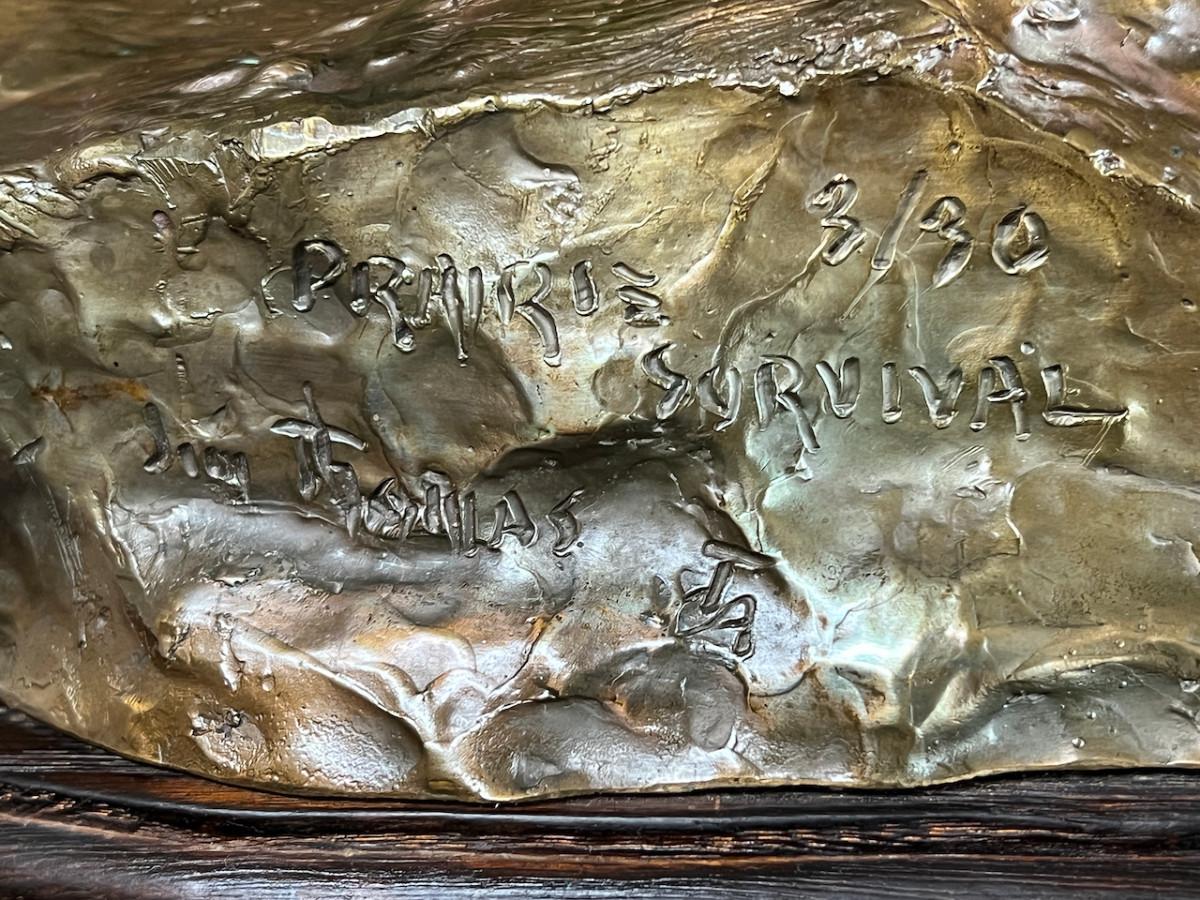 3/30
PRAIRIE
SURVIVAL
Jim Thomas